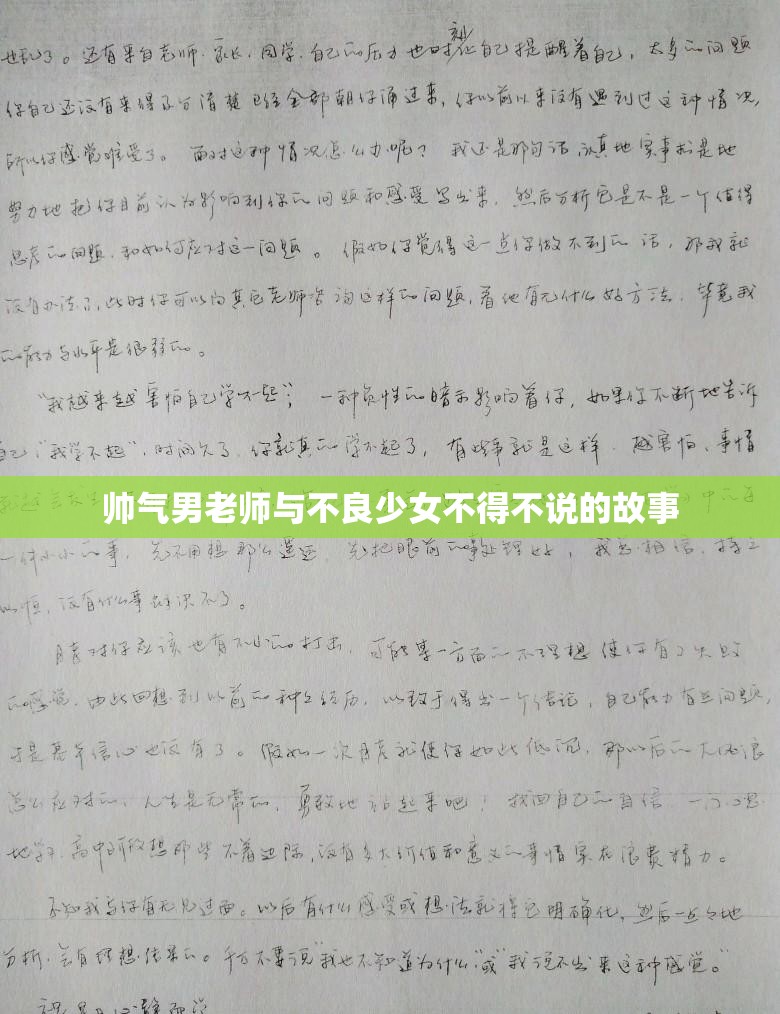 也乱了。还有来自老师、家长、同学、自己的压力也时刻让自己提醒着自己，太多的问题
你自己还没有来得及分清楚已经全部朝你涌过来，你以前从来没有遇到过这种情况，
所以你感觉难受了。面对这种情况怎么办呢？我还是那句话，认真地实事求是地
努力地把你目前认为影响到你的问题和感受写出来，然后分析它是不是一个值得
思考的问题，和如何应对这一问题。假如你觉得这一点你做不到的话，那我就
没有办法了，此时你可以向其它老师咨询这样的问题，看他有无什么好方法，毕竟我
的能力与水平是很弱的。
“我越来越害怕自己学不起”，一种负性的暗示影响着你，如果你不断地告诉
自己“我学不起”，时间久了，你就真的学不起了，有些事就是这样，越害怕，事情
帅气男老师与不良少女不得不说的故事
一件小小的事，先不用想那么遥远，先把眼前的事处理好，我相信，持之
以恒，没有什么事解决不了。
月考对你应该也有不小的打击，可能某一方面的不理想使你有了失败
的感觉，由此回想到以前的种种经历，以致于得出一个结论，自己能力有些问题，
于是基本信心也没有了。假如一次月考就使你如此低沉，那以后的大风浪
怎么应对的，人生是无常的，勇敢地站起来吧！找回自己的自信，一门心思
地学习，高中阶段想那些不着边际，没有多大价值和意义的事情实在浪费精力。
不知我与你有无见过面。以后有什么感受或想法就将它明确化，然后一点点地
分析，会有理想结果的。千万不要说“我也不知道为什么”或“我说不出来这种感觉。”